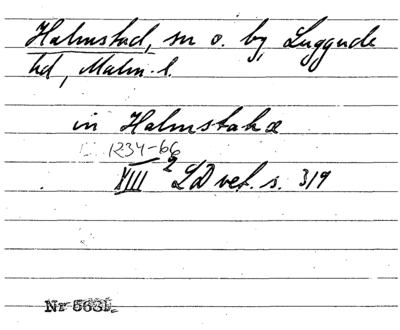 Halmstad, sn o. by, Luggude
hd, Malm. l.
in Halmstathæ
1234-66
XIII 2 LD vet. s. 319
Nr 5631.